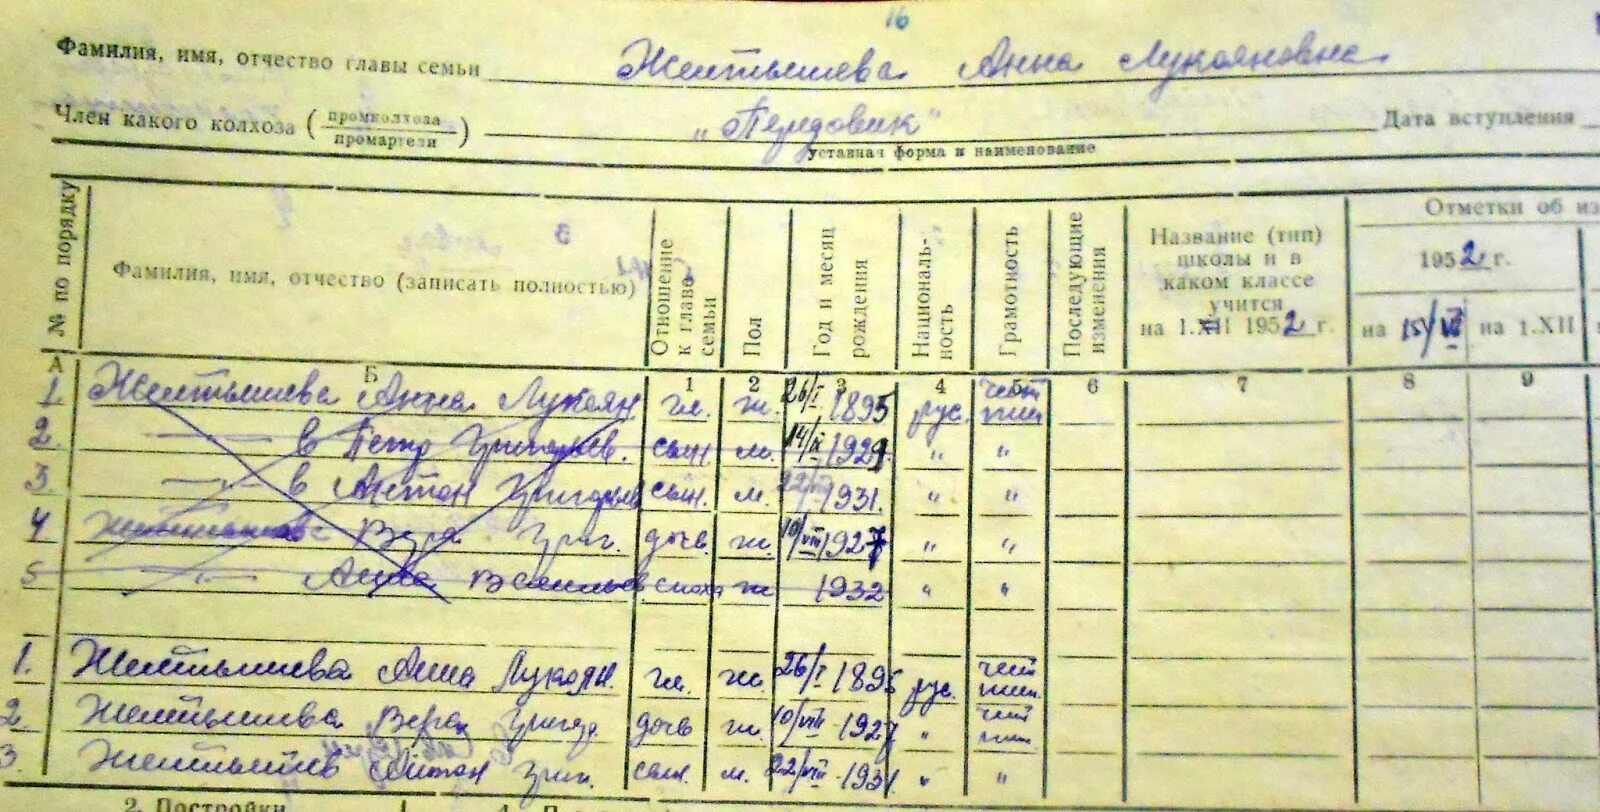 16
Фамилия, имя, отчество главы семьи Желтышева Анна Лукояновна
Член какого колхоза (промколхоза / промартели) "Передовик" Дата вступления
уставная форма и наименование
№ по порядку
Фамилия, имя, отчество (записать полностью)
Отношение к главе семьи
Пол
Год и месяц рождения
Националь-ность
Грамотность
Последующие изменения
Название (тип) школы и в каком классе учится на 1.XII 1952 г.
Отметки об из
1952 г.
на 15/VI
на 1.XII
А Б 1 2 3 4 5 6 7 8 9
1. Желтышева Анна Лукоян гл. ж. 26/I 1895 рус. чит пиш
2. — в Петр Григорьев. сын. м. 14/IX 1929 " "
3 — " — в Антон Григорьев сын. м. 22/VII 1931. " "
4 Вера Григ. дочь. ж. 10/VIII 1927 " "
5 — " — Васильев сноха ж 1932 " "
1. Желтышева Анна Лукоян. гл. ж. 26/I 1895 рус. чит пиш.
2. Желтышева Вера Григор. дочь ж. 10/VIII 1927 " чит пиш.
3. Желтышев Антон Григ. сын. м. 22/VII 1931. " "
2. Постройки